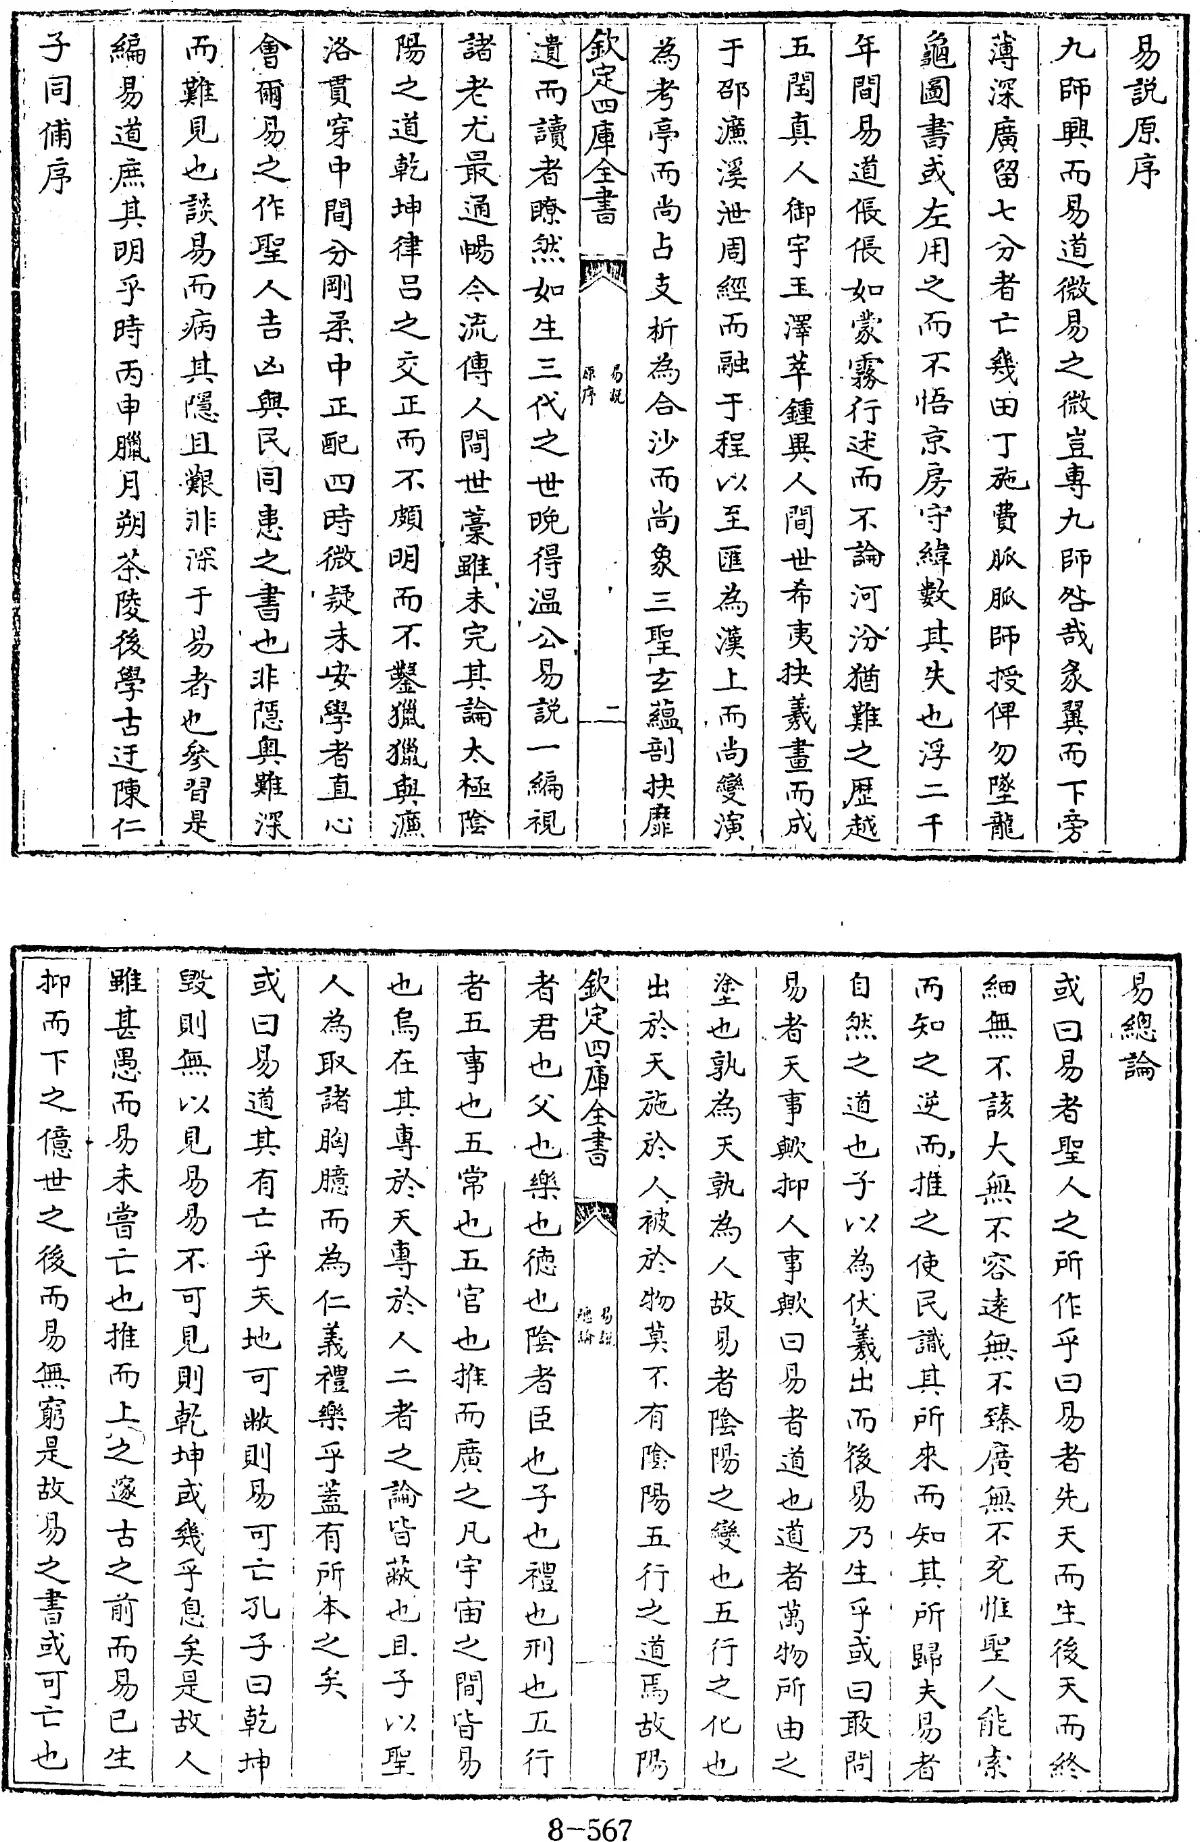 易説原序
九師興而易道微易之微豈専九師咎哉彖翼而下旁
薄深廣留七分者亡幾田丁施費脈脈師授俾勿墜龍
龜圖書或左用之而不悟京房守緯數其失也浮二千
年間易道倀倀如蒙霧行述而不論河汾猶難之歴越
五閏真人御宇玉澤萃鍾異人間世希夷抉羲畫而成
于邵濂溪泄周經而融于程以至匯為漢上而尚變演
為考亭而尚占支析為合沙而尚象三聖玄蘊剖抉靡
欽定四庫全書
易説
原序
二
遺而讀者瞭然如生三代之世晚得温公易説一編視
諸老尤最通暢今流傳人間世藁雖未完其論太極陰
陽之道乾坤律吕之交正而不頗明而不鑿獵獵與濂
洛貫穿中間分剛柔中正配四時微疑未安學者直心
會爾易之作聖人吉凶與民同患之書也非隠奥難深
而難見也談易而病其隱且艱非深于易者也參習是
編易道庶其明乎時丙申臘月朔茶陵後學古迂陳仁
子同俌序
易總論
或曰易者聖人之所作乎曰易者先天而生後天而終
細無不該大無不容逺無不臻廣無不充惟聖人能索
而知之逆而推之使民識其所來而知其所歸夫易者
自然之道也子以為伏羲出而後易乃生乎或曰敢問
易者天事歟抑人事歟曰易者道也道者萬物所由之
塗也孰為天孰為人故易者陰陽之變也五行之化也
出於天施於人被於物莫不有陰陽五行之道焉故陽
欽定四庫全書
易説
總論
一
者君也父也樂也徳也陰者臣也子也禮也刑也五行
者五事也五常也五官也推而廣之凡宇宙之間皆易
也烏在其專於天專於人二者之論皆蔽也且子以聖
人為取諸胸臆而為仁義禮樂乎蓋有所本之矣
或曰易道其有亡乎天地可敝則易可亡孔子曰乾坤
毁則無以見易易不可見則乾坤或幾乎息矣是故人
雖甚愚而易未嘗亡也推而上之邃古之前而易已生
抑而下之億世之後而易無窮是故易之書或可亡也
8-567